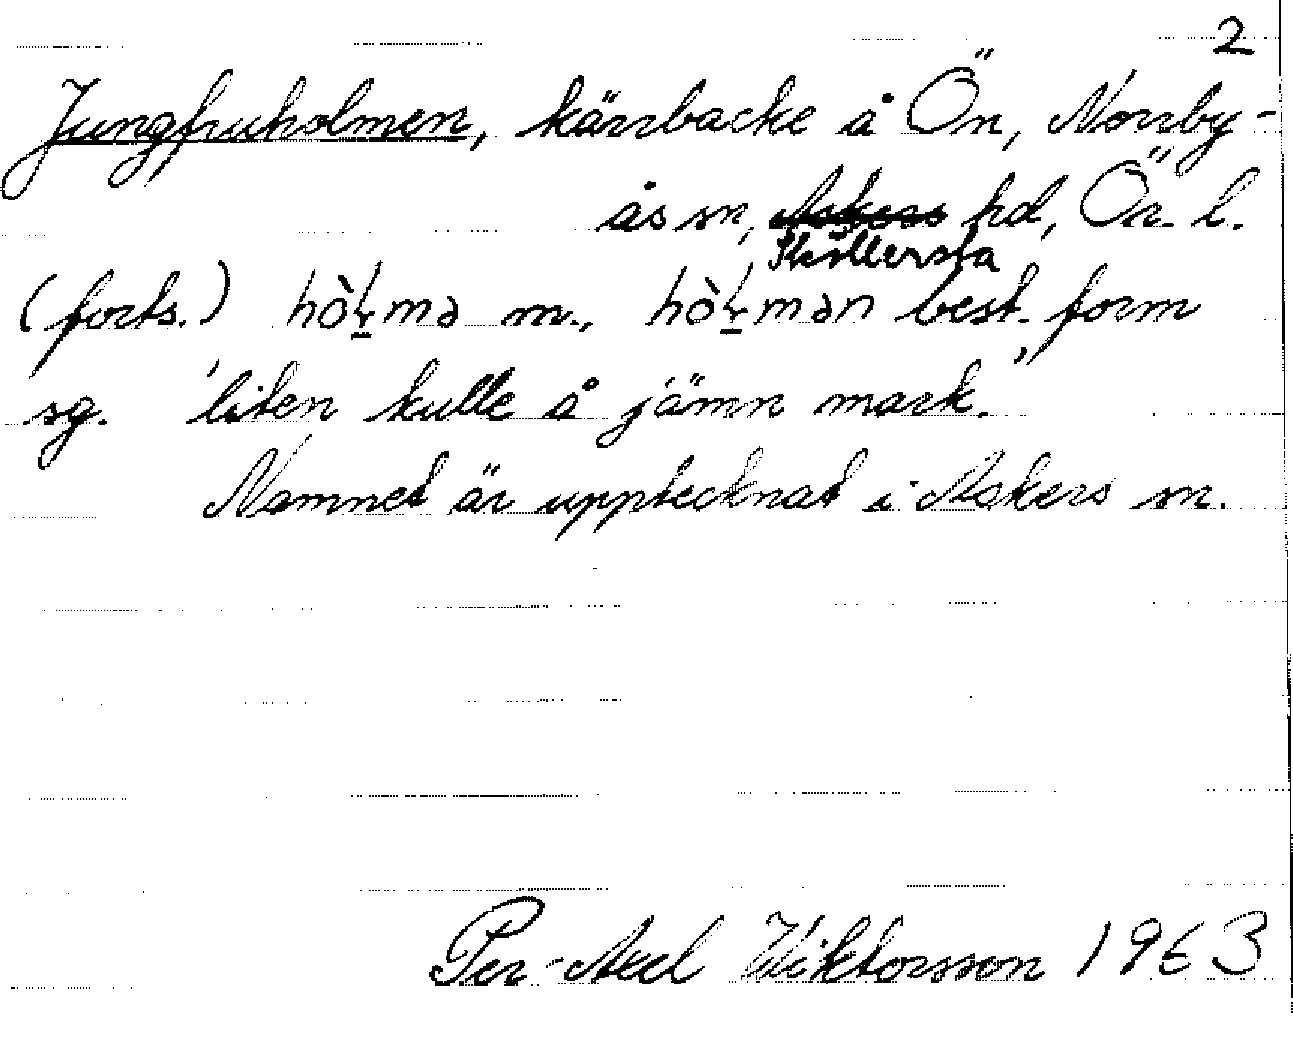 2
Jungfruholmen, kärrbacke å Ön, Norrby-
ås sn, Askers hd, Ör. l.
Sköllersta
(forts.) hòɫ̱mə m., hòɫ̱mən best. form
sg. 'liten kulle å jämn mark.'
Namnet är upptecknat i Askers sn.
Per-Axel Wiktorsson 1963